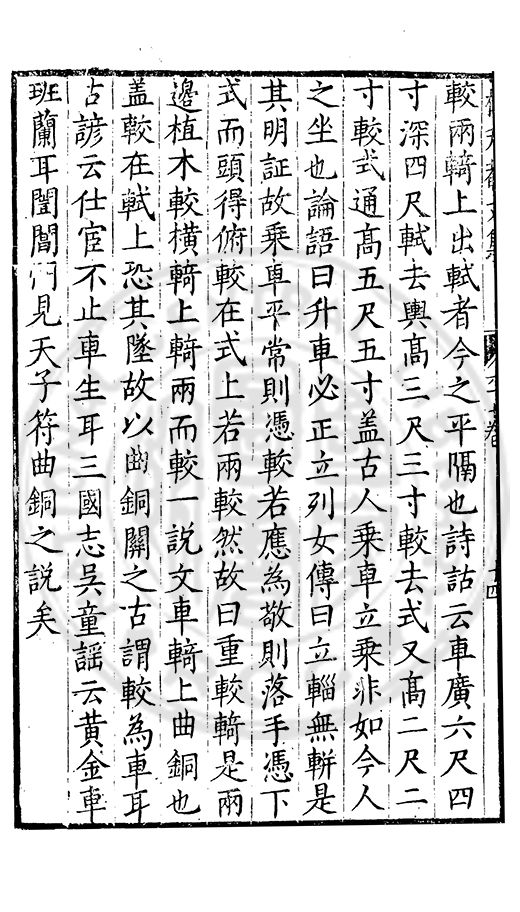 較兩輢上出軾者今之平隔也詩詁云車廣六尺四
寸深四尺軾去輿高三尺三寸較去式又高二尺二
寸較式通高五尺五寸盖古人乗車立乗非如今人
之坐也論語曰升車必正立列女傳曰立輜無軿是
其明証故乗車平常則憑較若應為敬則落手憑下
式而頭得俯較在式上若兩較然故曰重較輢是兩
邊植木較横輢上輢兩而較一說文車輢上曲銅也
盖較在軾上恐其墜故以曲銅關之古謂較為車耳
古諺云仕宦不止車生耳三國志吳童謡云黄金車
班蘭耳闓閶門見天子符曲銅之說矣